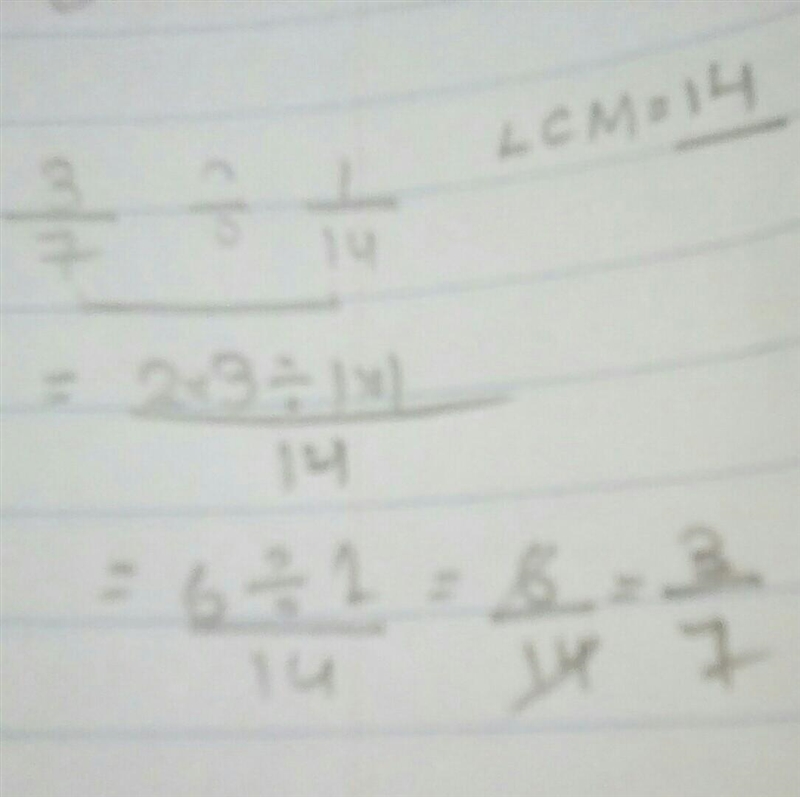 LCM = 14
3/7 ÷ 1/14
= 2×3 ÷ 1×1 / 14
= 6 ÷ 1 / 14 = 6/14 = 3/7